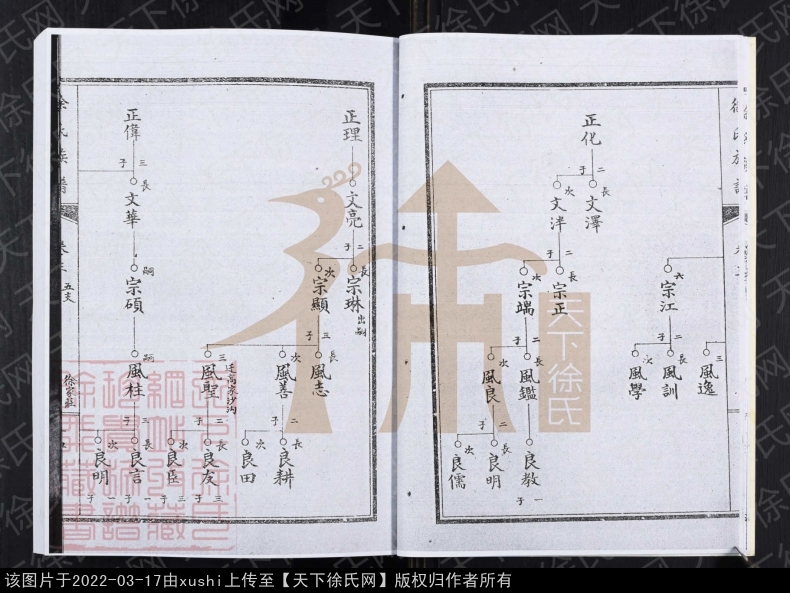 徐氏族譜
卷三
六
宗江
二子
長
風訓
次
風學
三
風逸
正化
二子
長
文澤
次
文泮
二子
長
宗正
次
宗端
二子
長
風鑑
次
風良
二子
良教
一子
長
良明
次
良儒
正理
長
文亮
二子
長
宗琳
出嗣
次
宗顯
三子
長
風志
次
風善
二子
長
良耕
次
良田
三
風聖
遷高家沙沟
二子
長
良友
三子
次
良臣
三子
正偉
三子
長
文華
嗣
宗碩
嗣
風柱
三子
長
良言
一子
次
良明
一子
徐氏族譜
卷三
五支
徐家莊
天下徐氏
天下徐氏网
该图片于2022-03-17由xushi上传至【天下徐氏网】版权归作者所有